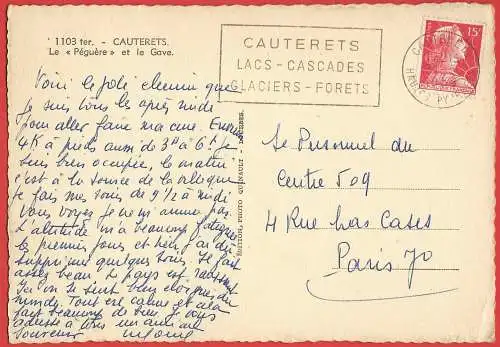 1103 ter. - CAUTERETS.
Le « Péguère » et le Gave.
CAUTERETS
LACS - CASCADES
GLACIERS - FORETS
15F
Voici le joli chemin que
je suis tous les après midi
pour aller faire ma cure. Environ
4K à pieds aussi de 3h à 6h je
suis bien occupée, le matin
c'est à la source de la
je fais mes soins de 9 1/2 à midi
Vous voyez je ne m'amuse pas.
L'altitude m'a beaucoup fatiguée
les premiers jours et hier, ai dû
supprimer quelques soins. Il fait
assez beau. Le pays est
Ici on se sent bien éloignés du
monde. Tout est calme et cela
fait beaucoup de bien. Je vous
adresse à tous un amical
souvenir
EDITION, PHOTO
Le Personnel du
Centre 509
4 Rue Las Cases
Paris 7o